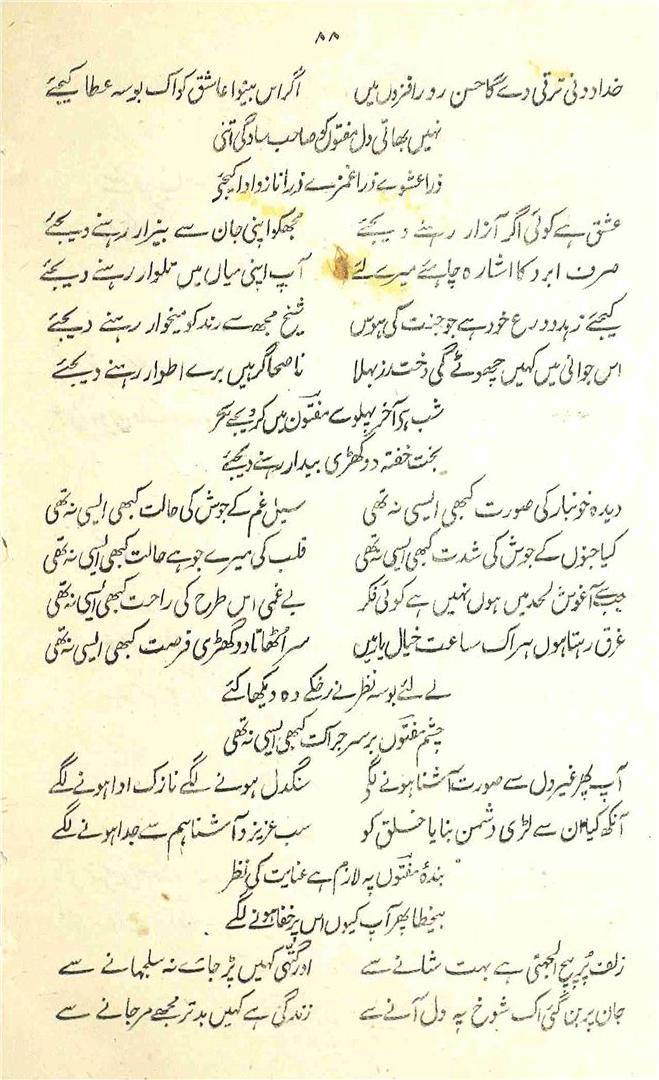 ۸۸
خدا دونی ترقی دے گا حسن روز افزوں میں اگر اس بینوا عاشق کو اک بوسہ عطا کیجئے
نہیں بھاتی دل مفتوں کو صاحب سادگی اتنی
ذرا عشوے ذرا غمزے ذرا ناز و ادا کیجئے
عشق ہے کوئی اگر آزار رہنے دیجئے مجھکو اپنی جان سے بیزار رہنے دیجئے
صرف ابرو کا اشارہ چاہئے میرے لئے آپ اپنی میاں میں تلوار رہنے دیجئے
کیجئے زہد و ورع خود ہے جو جنت کی ہوس شیخ مجھ سے رند کو میخوار رہنے دیجئے
اس جوانی میں کہیں چھوٹے گی دخت رز بھلا ناصحا گر ہیں برے اطوار رہنے دیجئے
شب ہی آخر پہلوے مفتوں میں کر دیجے سحر
بخت خفتہ دو گھڑی بیدار رہنے دیجئے
دیدہ خونبار کی صورت کبھی ایسی نہ تھی سیل غم کے جوش کی حالت کبھی ایسی نہ تھی
کیا جنوں کے جوش کی شدت کبھی ایسی نہ تھی قلب کی میرے جو ہے حالت کبھی ایسی نہ تھی
جب سے آغوش لحد میں ہوں نہیں ہے کوئی فکر بے غمی اس طرح کی راحت کبھی ایسی نہ تھی
غرق رہتا ہوں ہر اک ساعت خیال یار میں سر اُٹھاتا دو گھڑی فرصت کبھی ایسی نہ تھی
لے لئے بوسہ نظر نے رخکے وہ دیکھا کئے
چشم مفتوں بر سر جرات کبھی ایسی نہ تھی
آپ پھر غیر دل سے صورت آشنا ہونے لگے سنگدل ہونے لگے نازک ادا ہونے لگے
آنکھ کیا ان سے لڑی دشمن بنایا خلق کو سب عزیز و آشنا ہم سے جدا ہونے لگے
بندۂ مفتوں پہ لازم ہے عنایت کی نظر
بیخطا پھر آپ کیوں اس پر خفا ہونے لگے
زلف پُر پیچ الجھتی ہے بہت شانے سے اور گتھی کہیں پڑ جائے نہ سلجھانے سے
جان پر بن گئی اک شوخ پہ دل آنے سے زندگی ہے کہیں بدتر مجھے مر جانے سے